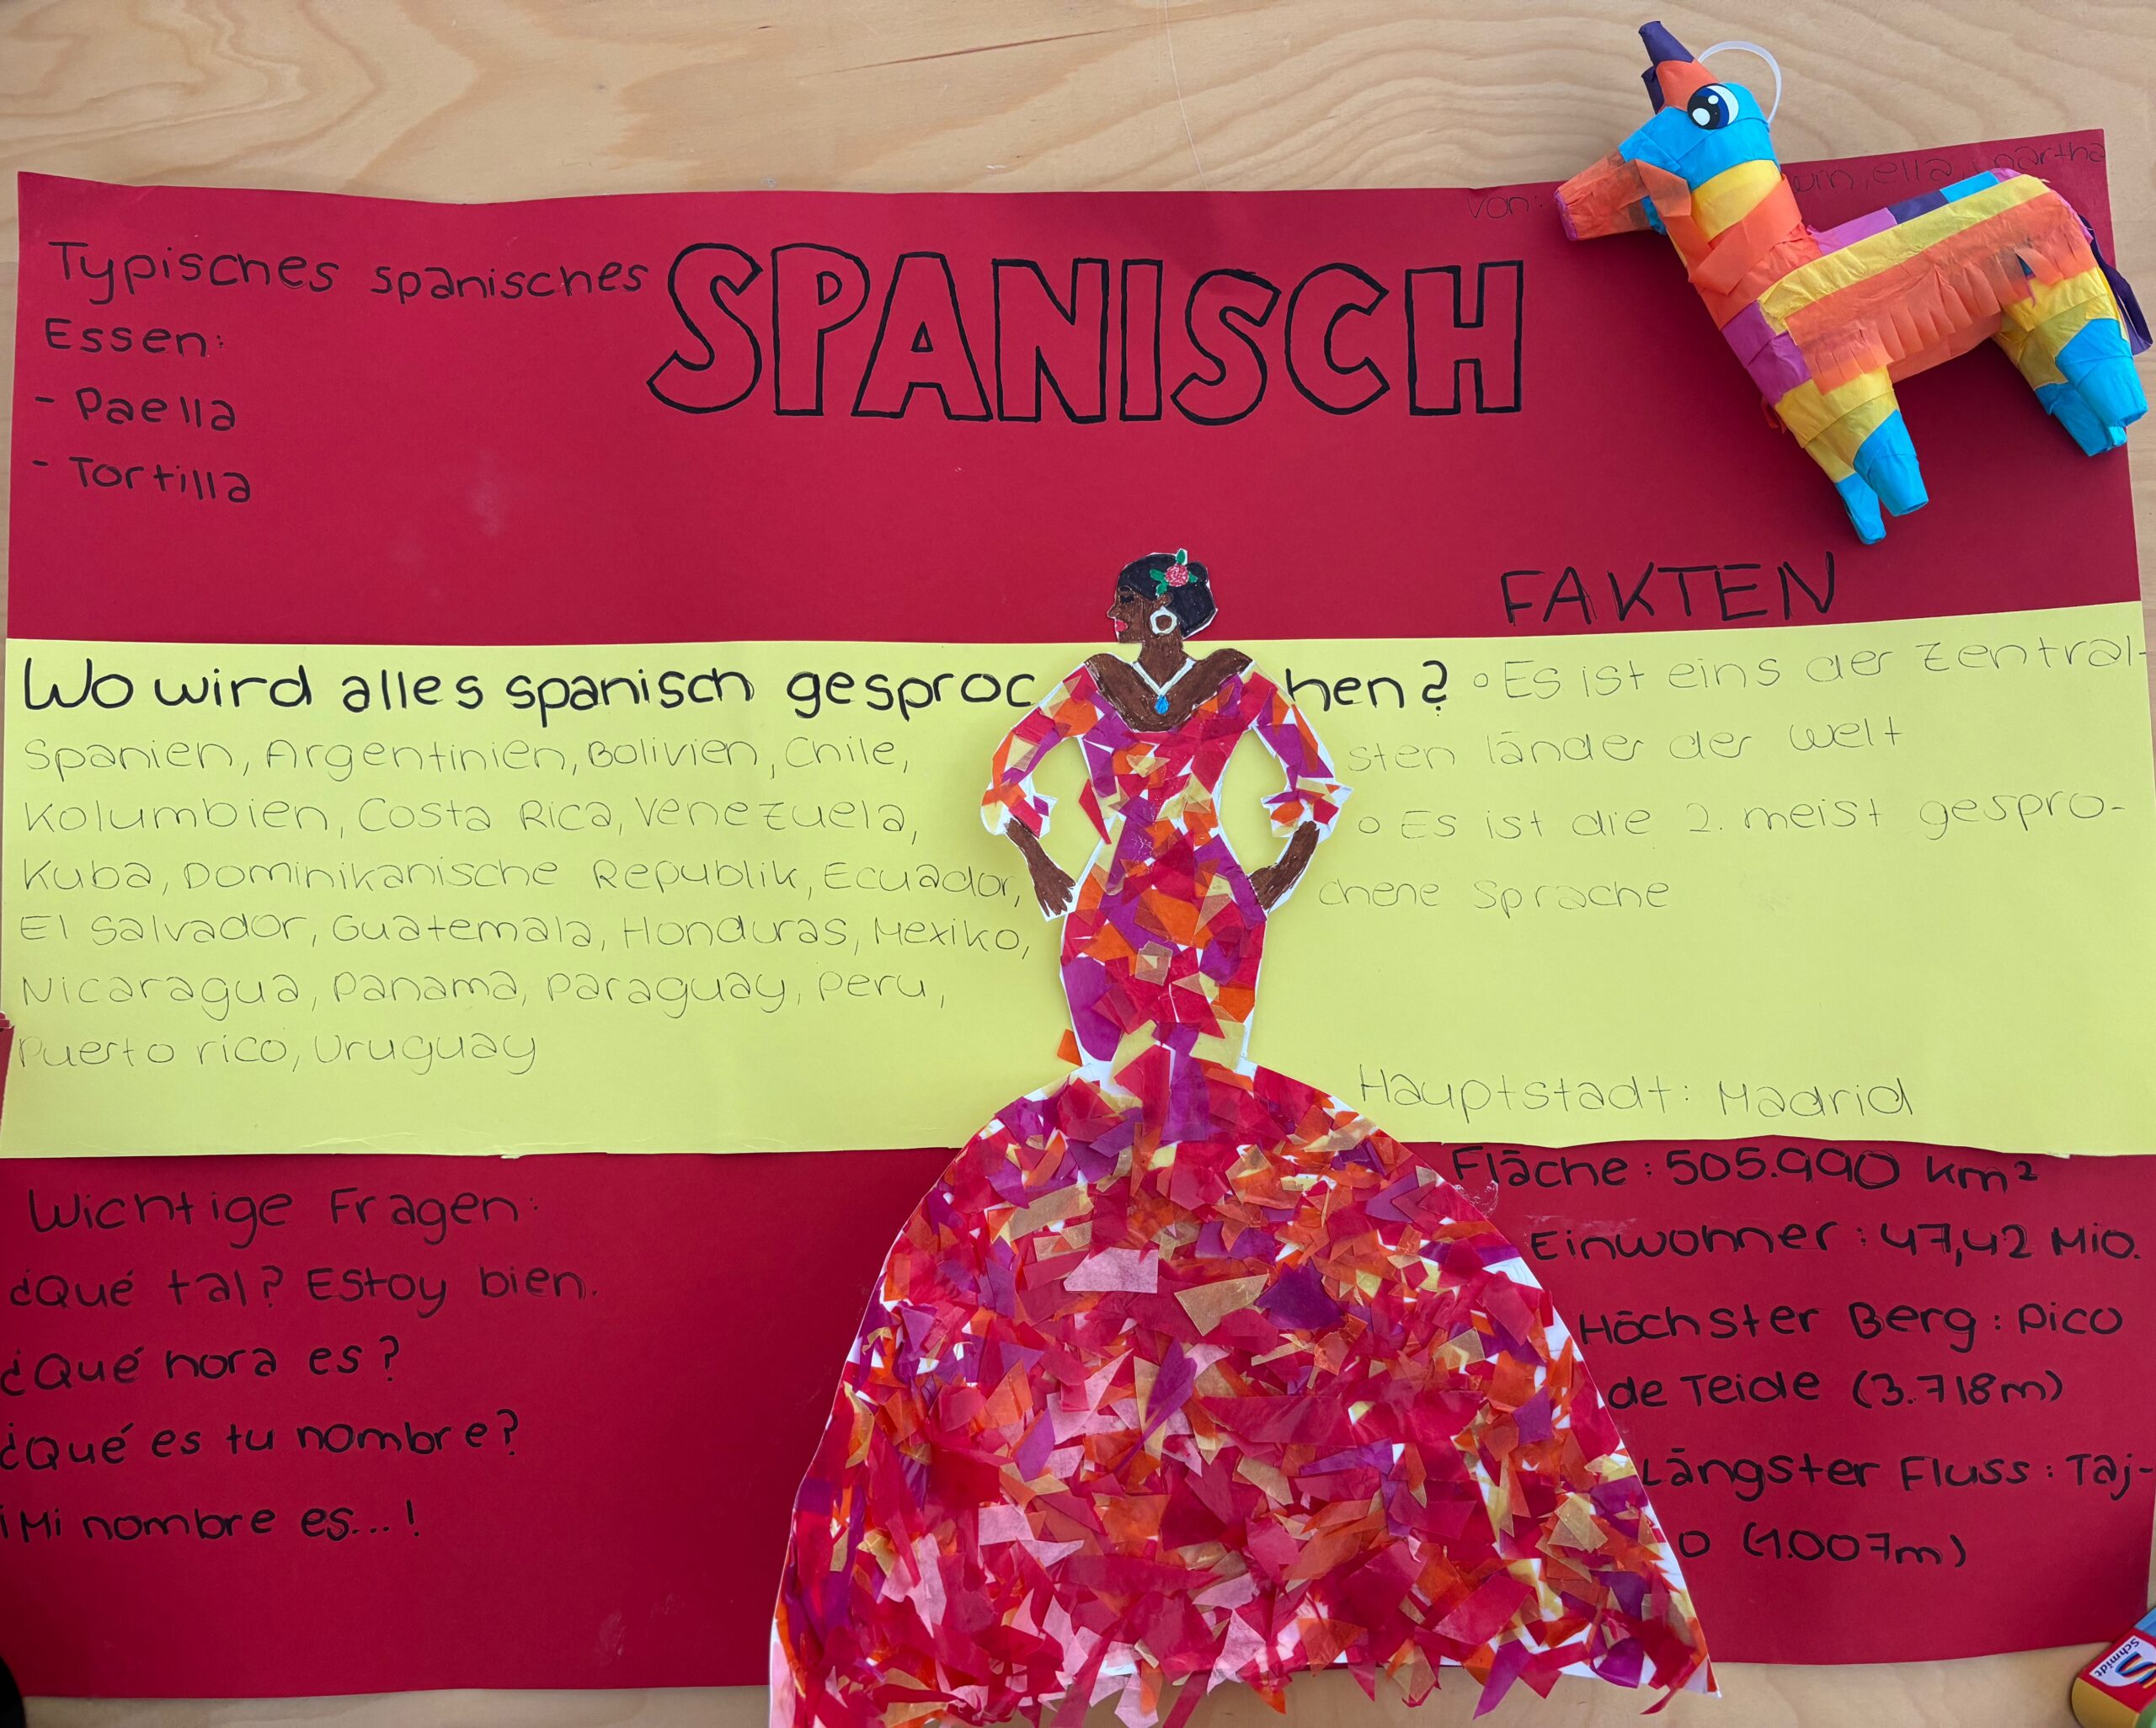 von: ella, martha
SPANISCH
Typisches spanisches
Essen:
- Paella
- Tortilla
Wo wird alles spanisch gesprochen?
Spanien, Argentinien, Bolivien, Chile,
Kolumbien, Costa Rica, Venezuela,
Kuba, Dominikanische Republik, Ecuador,
El Salvador, Guatemala, Honduras, Mexiko,
Nicaragua, Panama, Paraguay, Peru,
Puerto rico, Uruguay
Wichtige Fragen:
¿Qué tal? Estoy bien.
¿Qué hora es?
¿Qué es tu nombre?
¡Mi nombre es...!
FAKTEN
◦ Es ist eins der zentral-
sten länder der welt
◦ Es ist die 2. meist gespro-
chene Sprache
Hauptstadt: Madrid
Fläche: 505.990 km²
Einwohner: 47,42 Mio.
Höchster Berg: Pico
de Teide (3.718m)
Längster Fluss: Taj-
o (1.007m)
Schmidt